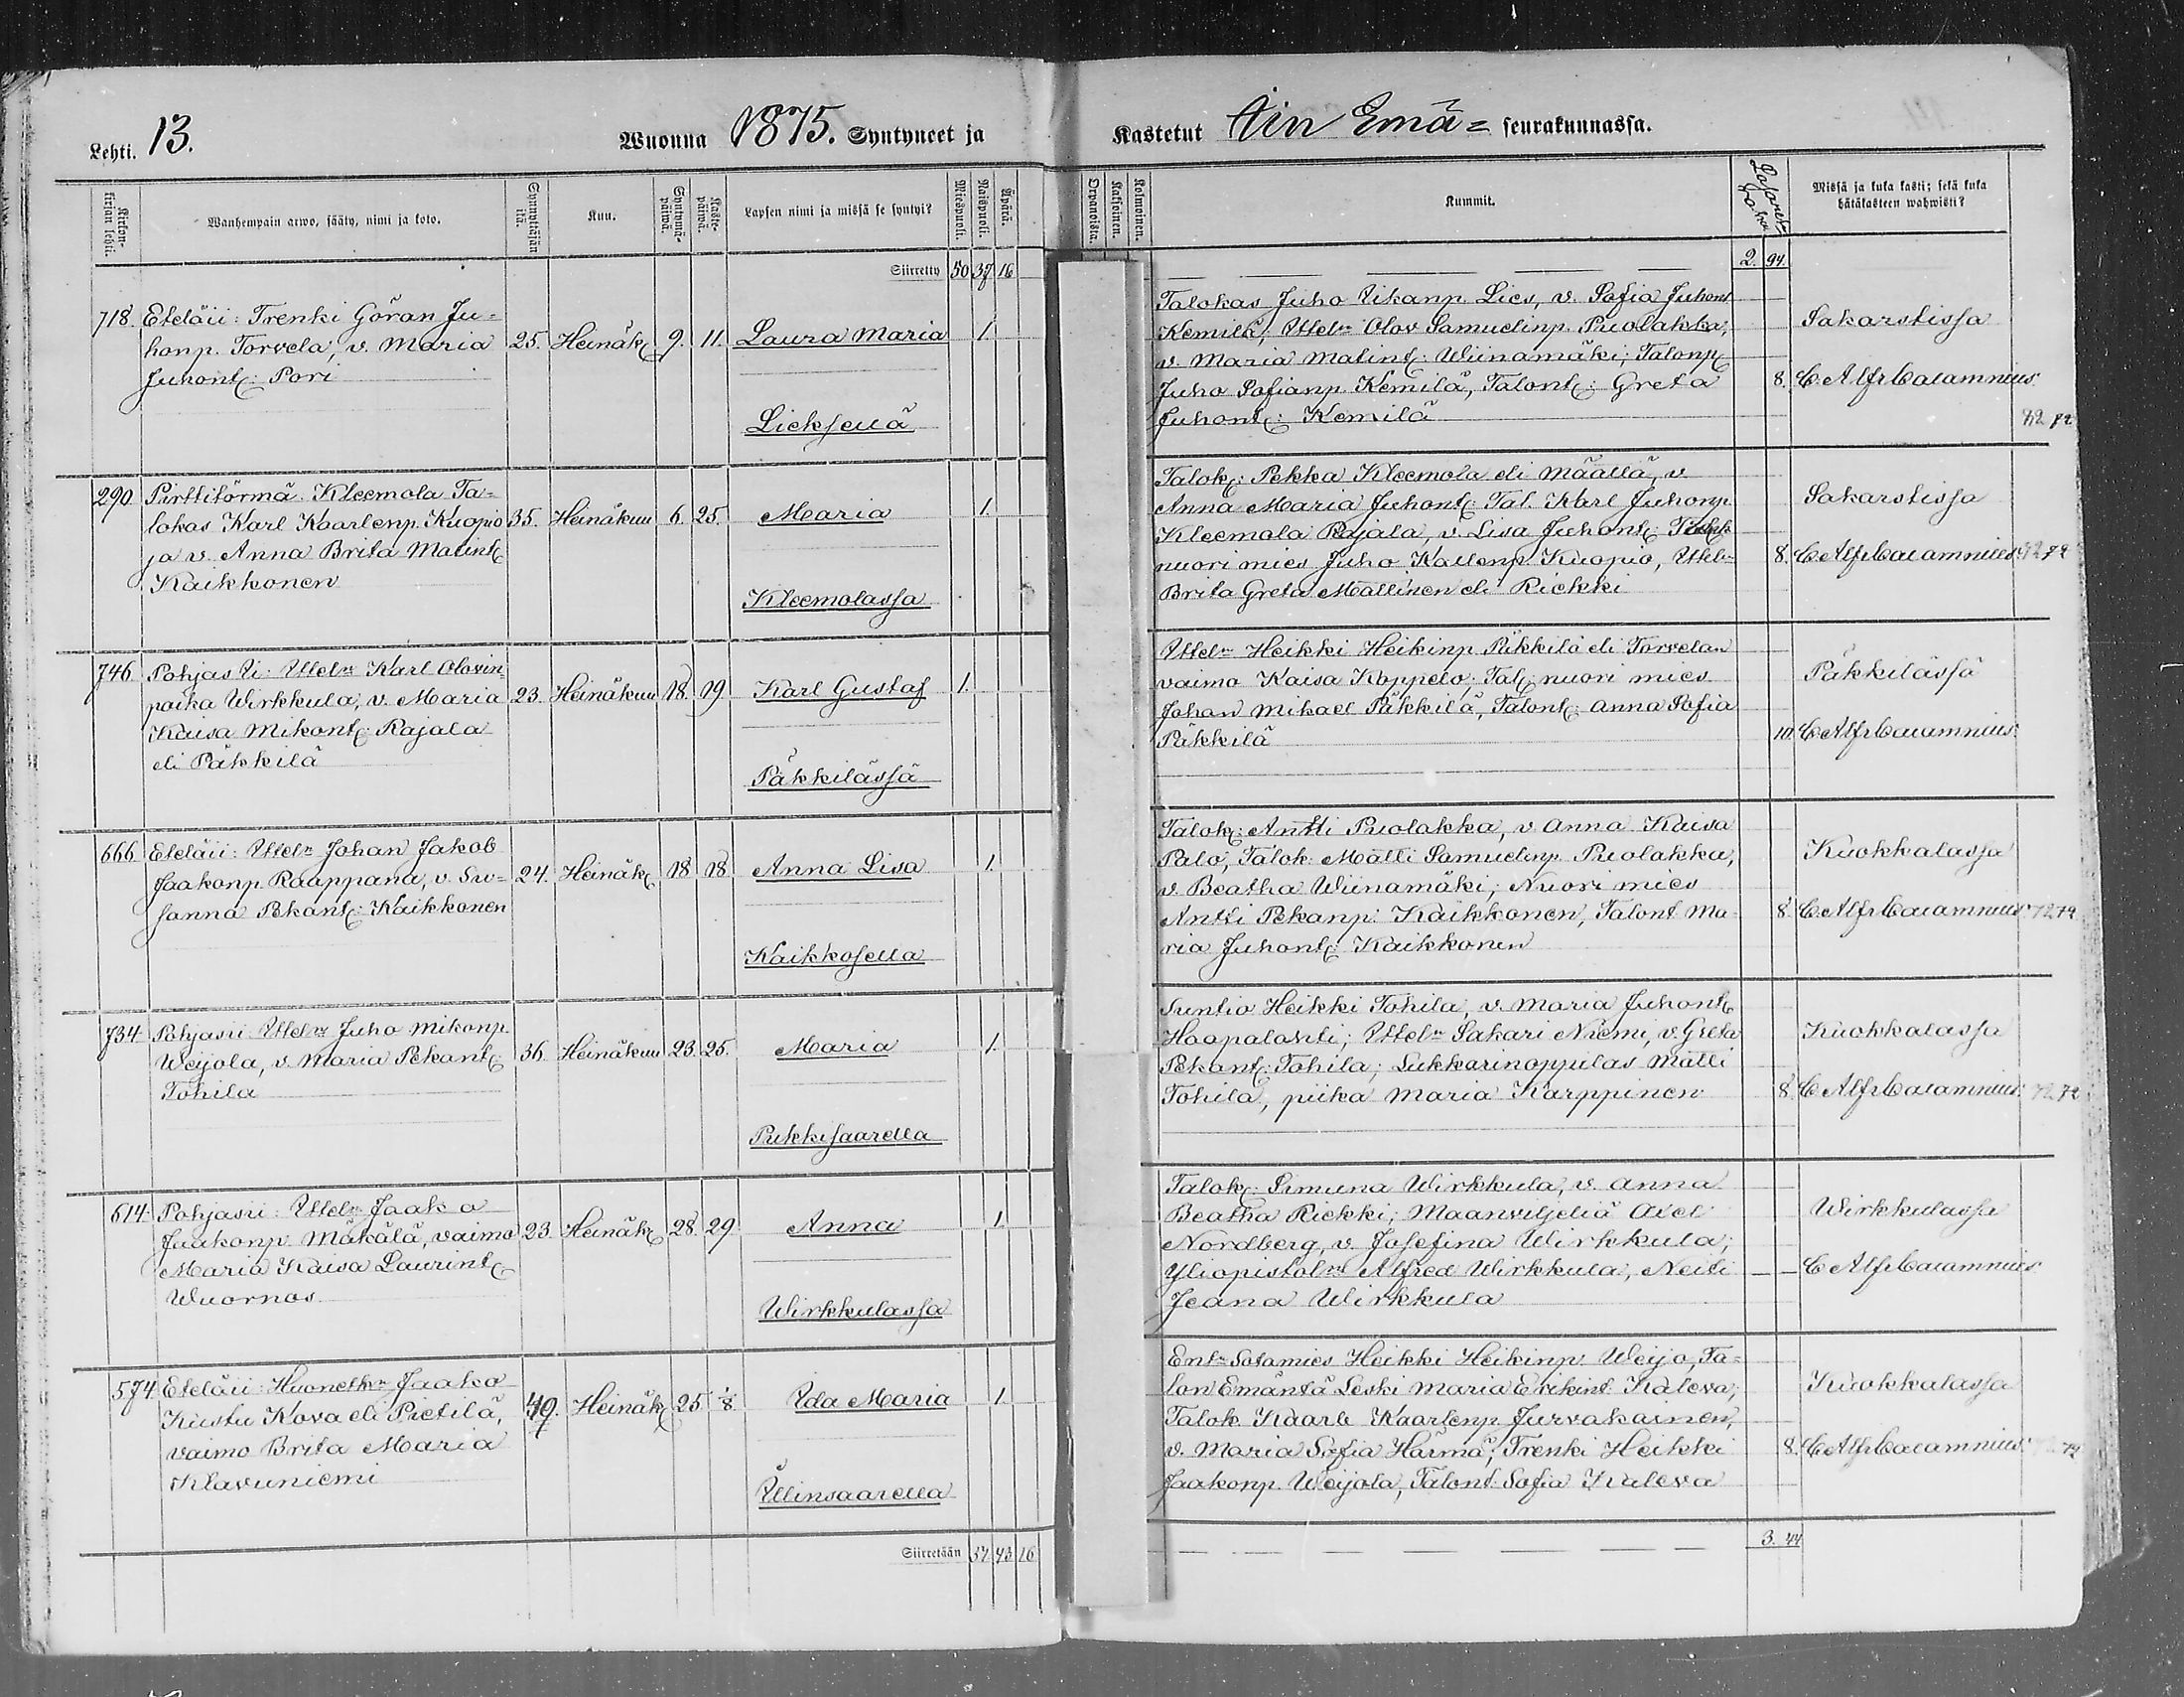 Lehti. 13. Wuonna 1875. Syntyneet ja
Kirkonkirjan lehti. Wanhempain arwo, sääty, nimi ja koto. Synnyttäjän ikä. Kuu. Syntymäpäiwä. Kastepäiwä. Lapsen nimi ja missä se syntyi? Miespuoli. Naispuoli. Äpärä.
Siirretty 50 37 16
718. Eteläii: Trenki Göran Ju=
honp. Torvela, v. Maria 25. Heinäk: 9. 11. Laura Maria 1.
Juhont: Pori
Lieksellä
290 Pirttitörmä. Kleemola Ta=
lokas Karl Kaarlenp. Kuopio 35. Heinäkuu 6. 25. Maria 1.
ja v. Anna Brita Matint:
Kaikkonen
Kleemolassa
746 Pohjas Ii: Ittel:n Karl Olovin
poika Wirkkula, v. Maria 23. Heinäkuu 18. 19. Karl Gustaf 1.
Kaisa Mikont: Rajala
eli Päkkilä
Päkkilässä
666 Eteläii: Ittel:n Johan Jakob
Jaakonp. Raappana, v. Su= 24. Heinäk: 18 18 Anna Lisa 1.
sanna Pekant: Kaikkonen
Kaikkosella
734 Pohjasii Ittel:n Juho Mikonp.
Weijola, v. Maria Pekant: 36. Heinäkuu 23. 25. Maria 1.
Tohila
Pukkisaarella
614 Pohjasii: Ittel:n Jaako
Jaakonp. Mäkälä, vaimo 23. Heinäk: 28. 29. Anna 1
Maria Kaisa Laurint:
Wuornos
Wirkkulassa
574 Eteläii: Huonetk:n Jaako
Kustu Kova eli Pietilä, 49. Heinäk: 25 1/8 Ida Maria 1
vaimo Brita Maria
Klavuniemi
Illinsaarella
Siirretään 51 43 16
Kastetut Iin Emä= seurakunnassa.
Orpanoista. Kaksoinen. Kolmoinen. Kummit. Missä ja kuka kasti; sekä kuka hätäkasteen wahwisti?
2. 94.
Talokas Juho Iikanp. Lies, v. Sofia Juhont
Kemilä; Ittel:n Olov Samuelinp. Puolakka, Sakarstissa
v. Maria Matint: Wiinamäki; Talonp:
Juho Sofianp. Kemilä, Talont: Greta 8. C. Alfr Calamnius.
Juhont: Kemilä
Talok: Pekka Kleemola eli Määttä, v.
Anna Maria Juhont: Tal. Karl Juhonp. Sakarstissa
Kleemola Rajala, v. Lisa Juhont:
nuori mies Juho Kallenp. Kuopio, Ittel:n 8. C Alfr Calamnius
Brita Greta Mällinen eli Riekki
Ittel:n Heikki Heikinp. Päkkilä eli Torvelan
vaimo Kaisa Koppelo; Tal: nuori mies Päkkilässä
Johan Mikael Päkkilä, Talont: Anna Sofia
Päkkilä 10. C Alfr Calamnius.
Talok: Antti Puolakka, v. Anna Kaisa
Palo; Talok: Matti Samuelinp. Puolakka, Kuokkalassa
v. Beatha Wiinamäki; Nuori mies
Antti Pekanp: Kaikkonen, Talont Ma= 8. C Alfr Calamnius.
ria Juhont: Kaikkonen
Suntio Heikki Tohila, v. Maria Juhont:
Haapalahti; Ittel:n Sakari Niemi, v. Greta Kuokkalassa
Pekant: Tohila; Lukkarinoppilas Matti
Tohila, piika Maria Karppinen 8. C Alfr Calamnius.
Talok: Simuna Wirkkula, v. Anna
Beatha Riekki; Maanviljeliä Axel Wirkkulassa
Nordberg, v. Josefina Wirkkula;
Yliopistol:n Alfred Wirkkula, Neiti — — C Alfr Calamnius
Jeana Wirkkula
Ent:n Sotamies Heikki Heikinp. Weijo, Ta=
lon Emäntä Leski Maria Erikint. Kaleva; Kuokkalassa
Talok Kaarle Kaarlenp. Jurvakainen,
v. Maria Sofia Härmä; Trenki Heikki 8. C Alfr Calamnius.
Jaakonp. Weijola, Talont. Sofia Kaleva
3. 44